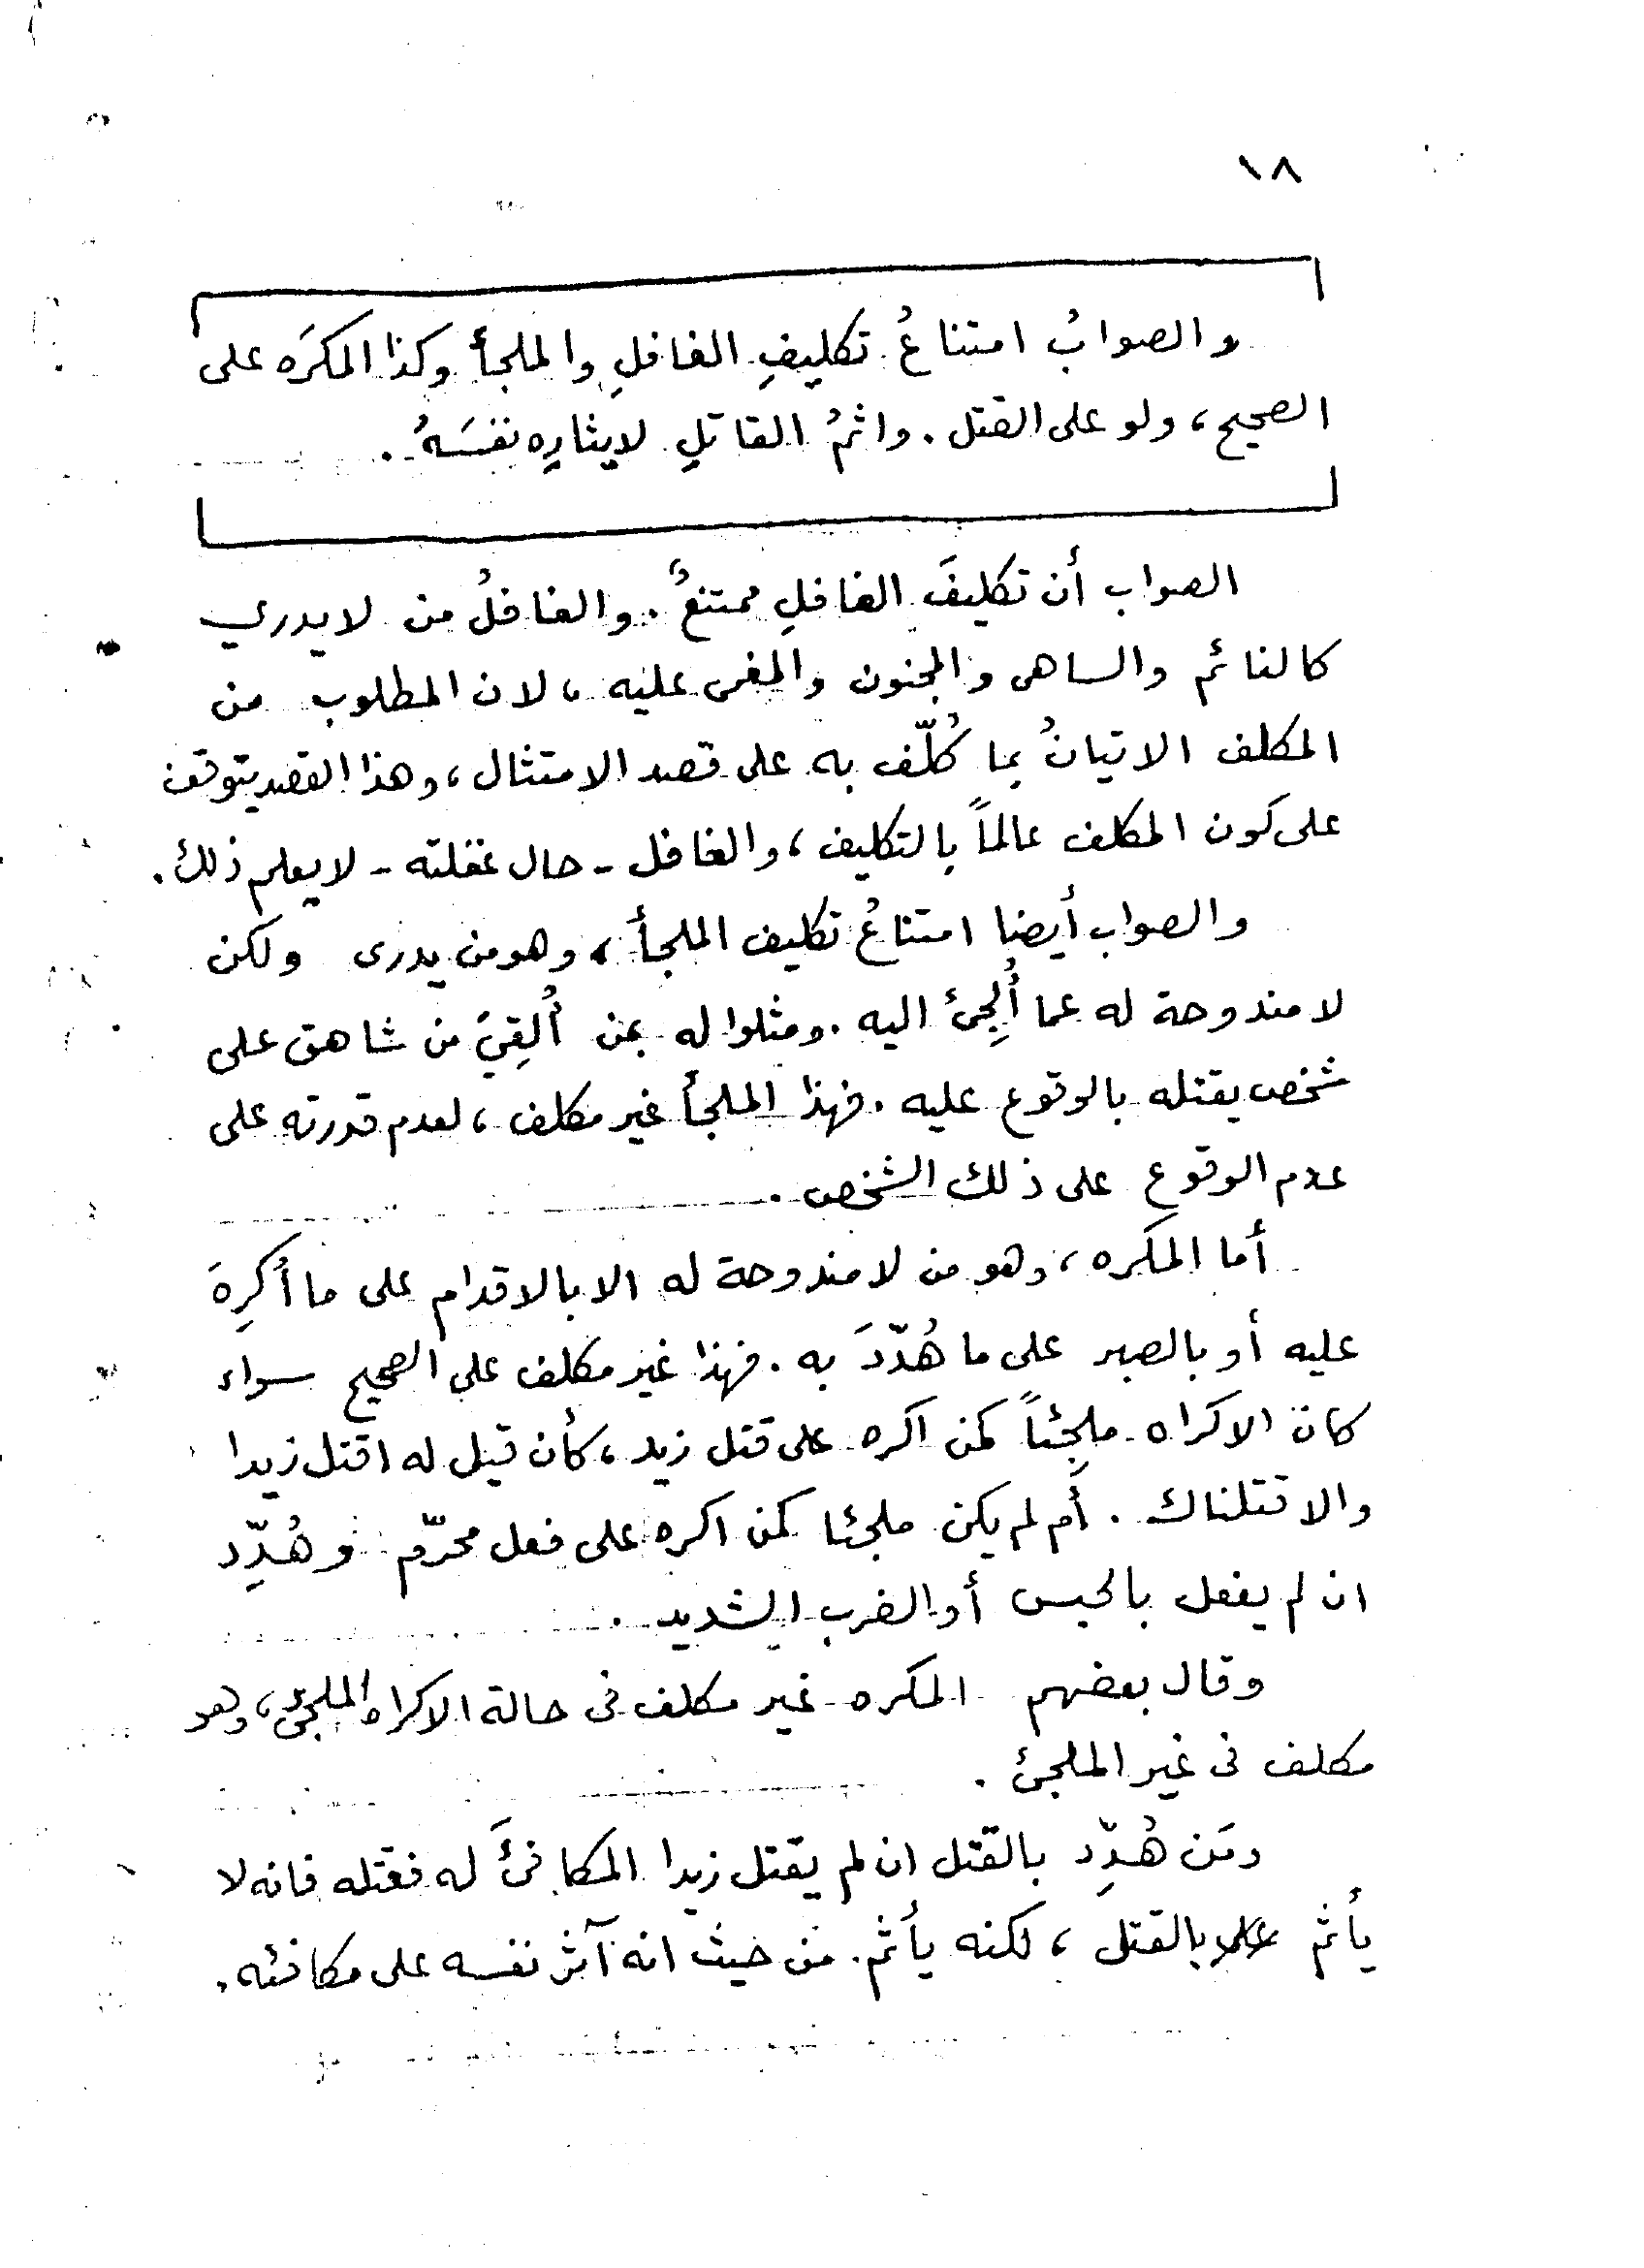 ١٨
والصوابُ امتناعُ تكليفِ الغافلِ والملجأ وكذا المكرَه على
الصحيح، ولو على القتل. واثمُ القاتلِ لايثارِه نفسَهُ.
الصواب أن تكليفَ الغافلِ ممتنعٌ. والغافلُ من لايدري
كالنائم والساهى والمجنون والمغمى عليه، لان المطلوب من
المكلف الاتيانُ بما كُلّف به على قصد الامتثال، وهذا القصد يتوقف
على كون المكلف عالماً بالتكليف، والغافل - حال غفلته - لايعلم ذلك.
والصواب أيضا امتناعُ تكليف الملجأ، وهو من يدرى ولكن
لا مندوحة له عما أُلجِئ اليه. ومثلوا له بمن أُلقِيَ من شاهق على
شخص يقتله بالوقوع عليه. فهذا الملجأ غير مكلف، لعدم قدرته على
عدم الوقوع على ذلك الشخص.
أما المكره، وهو من لا مندوحة له الا بالاقدام على ما أُكرِهَ
عليه أو بالصبر على ما هُدّدَ به. فهذا غير مكلف على الصحيح سواء
كان الاكراه ملجِئاً كمن اكره على قتل زيد، كأن قيل له اقتل زيدا
والا قتلناك. أم لم يكن ملجئا كمن اكره على فعل محرّم وهُدِّد
ان لم يفعل بالحبس أو الضرب الشديد.
وقال بعضهم المكره غير مكلف فى حالة الاكراه الملجئ، وهو
مكلف فى غير الملجئ.
ومَن هُدِّد بالقتل ان لم يقتل زيدا المكافئَ له فقتله فانه لا
يأثم بالقتل، لكنه يأثم من حيث انه آثر نفسه على مكافئه.